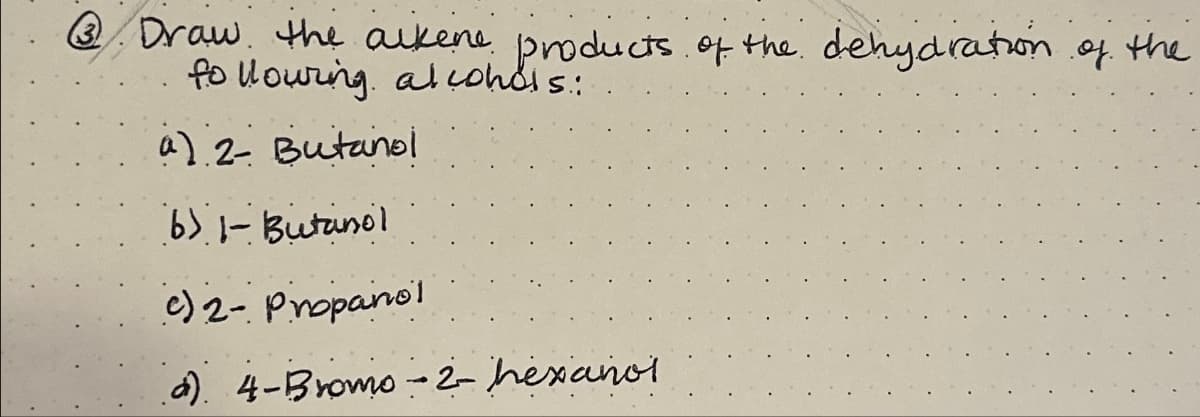 ③. Draw the alkene products of the dehydration of the
following alcohols:
a) 2- Butanol
b) 1- Butanol
c) 2- Propanol
d) 4-Bromo-2-hexanol